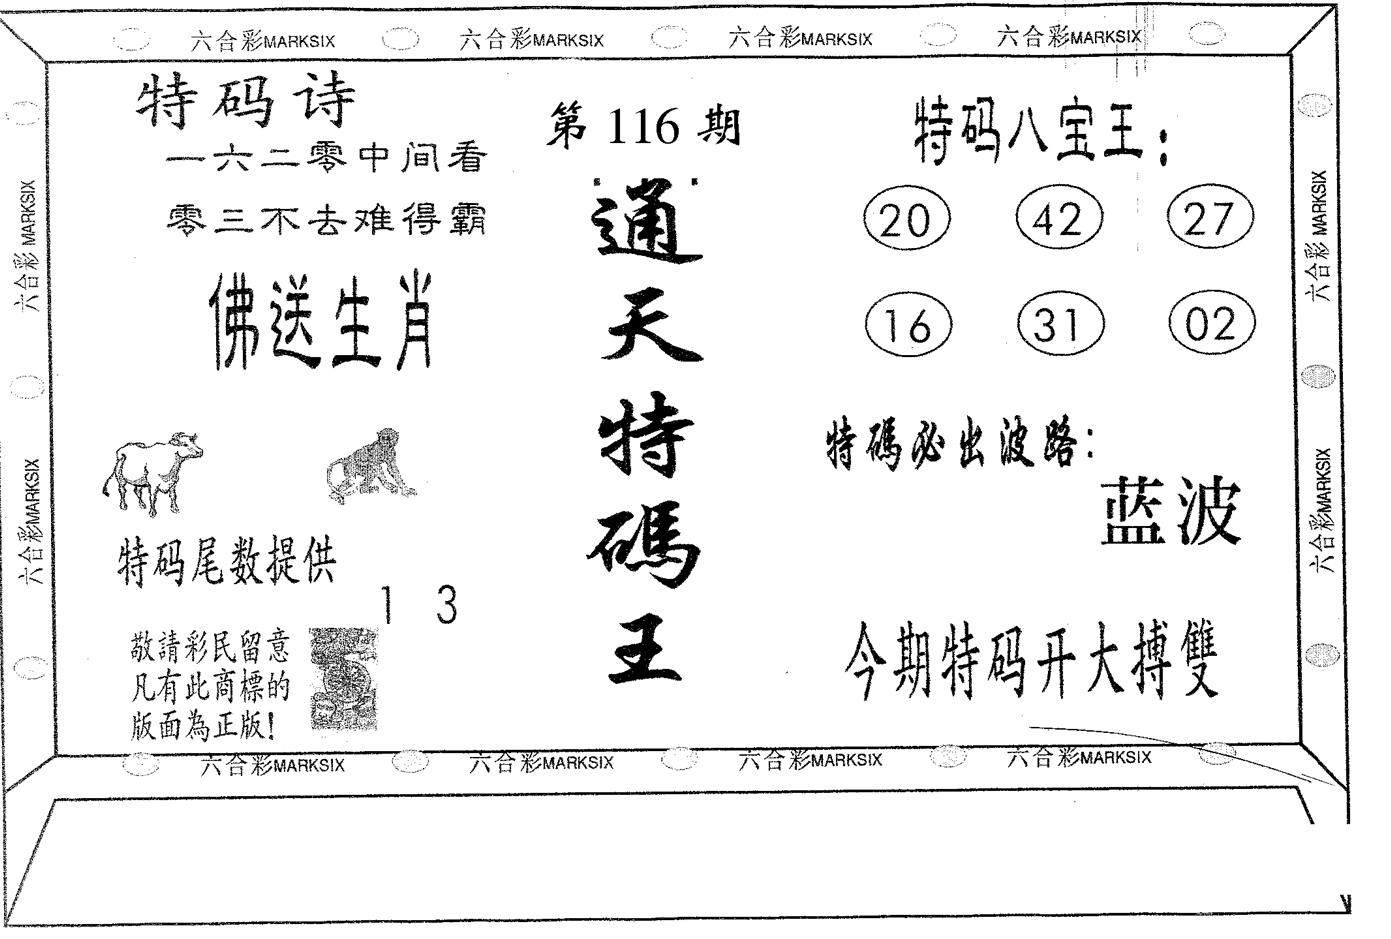 六合彩MARKSIX 六合彩MARKSIX 六合彩MARKSIX 六合彩MARKSIX
六合彩MARKSIX
六合彩MARKSIX
特码诗
一六二零中间看
零三不去难得霸
佛送生肖
特码尾数提供
1 3
敬請彩民留意
凡有此商標的
版面為正版!
第116期
通天特碼王
特码八宝王:
20 42 27
16 31 02
特碼必出波路:
蓝波
今期特码开大搏雙
六合彩MARKSIX
六合彩MARKSIX
六合彩MARKSIX 六合彩MARKSIX 六合彩MARKSIX 六合彩MARKSIX